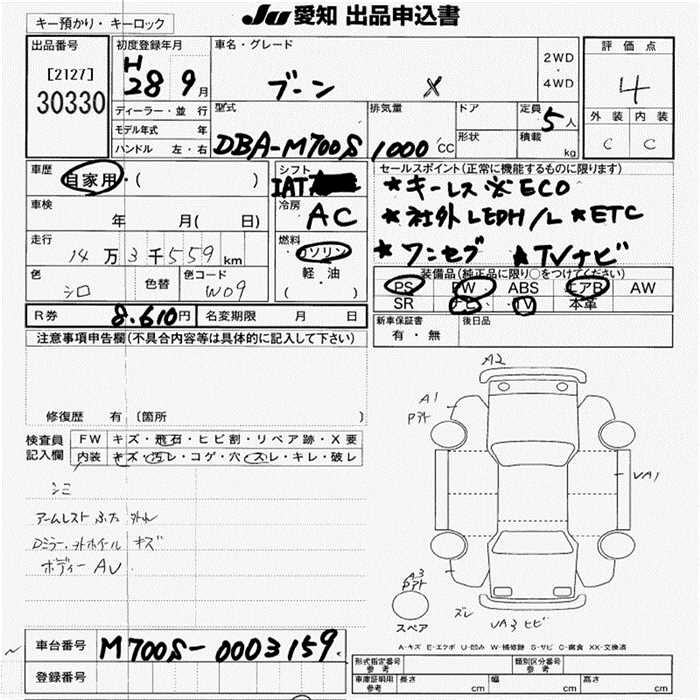 Ju 愛知 出品申込書
キー預かり・キーロック
出品番号
[2127]
30330
初度登録年月
H
28 9月
ディーラー・並行
モデル年式 年
ハンドル 左・右
車名・グレード
ブーン X
2WD
・
4WD
型式
DBA-M700S
排気量
1000 CC
ドア
形状
定員
5人
積載
kg
評価点
4
外装 内装
C C
車歴
自家用・( )
車検
年 月( 日)
走行
14万3千559km
色
シロ
色替
色コード
W09
シフト
IAT
冷房
AC
燃料
ガソリン
軽・油
( )
セールスポイント(正常に機能するものに限ります)
★キーレス ※ECO
★社外LEDH/L ★ETC
★ワンセグ ★TVナビ
装備品(純正品に限り○をつけてください)
PS PW ABS エアB AW
SR ナビ TV 本革
新車保証書
有・無
後日品
R券 8.610円
名変期限 月 日
注意事項申告欄(不具合内容等は具体的に記入して下さい)
修復歴 有 〔箇所 〕
検査員
記入欄
FW キズ・飛石・ヒビ割・リペア跡・X要
内装 キズ・汚レ・コゲ・穴・スレ・キレ・破レ
シミ
アームレスト ふた 外れ
Dミラー・外ホイール キズ
ボディー AU
A2
A1
Pアト
UA1
A3
Pアト
スペア
ズレ
UA3 ヒビ
A-キズ E-エクボ U-凹み W-補修跡 S-サビ C-腐食 XX-交換済
車台番号 M700S-0003159
登録番号
形式指定番号
参考
類別区分番号
参考
車庫証明用
参考
長さ cm
幅 cm
高さ cm